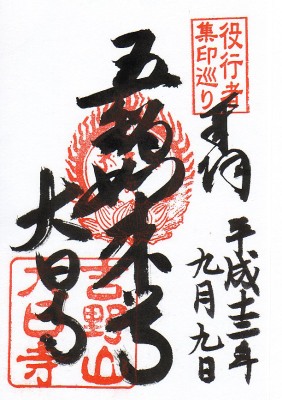 役行者
集印巡り
奉拝
平成十二年
九月九日
五智如来
大日寺
吉野山
大日寺